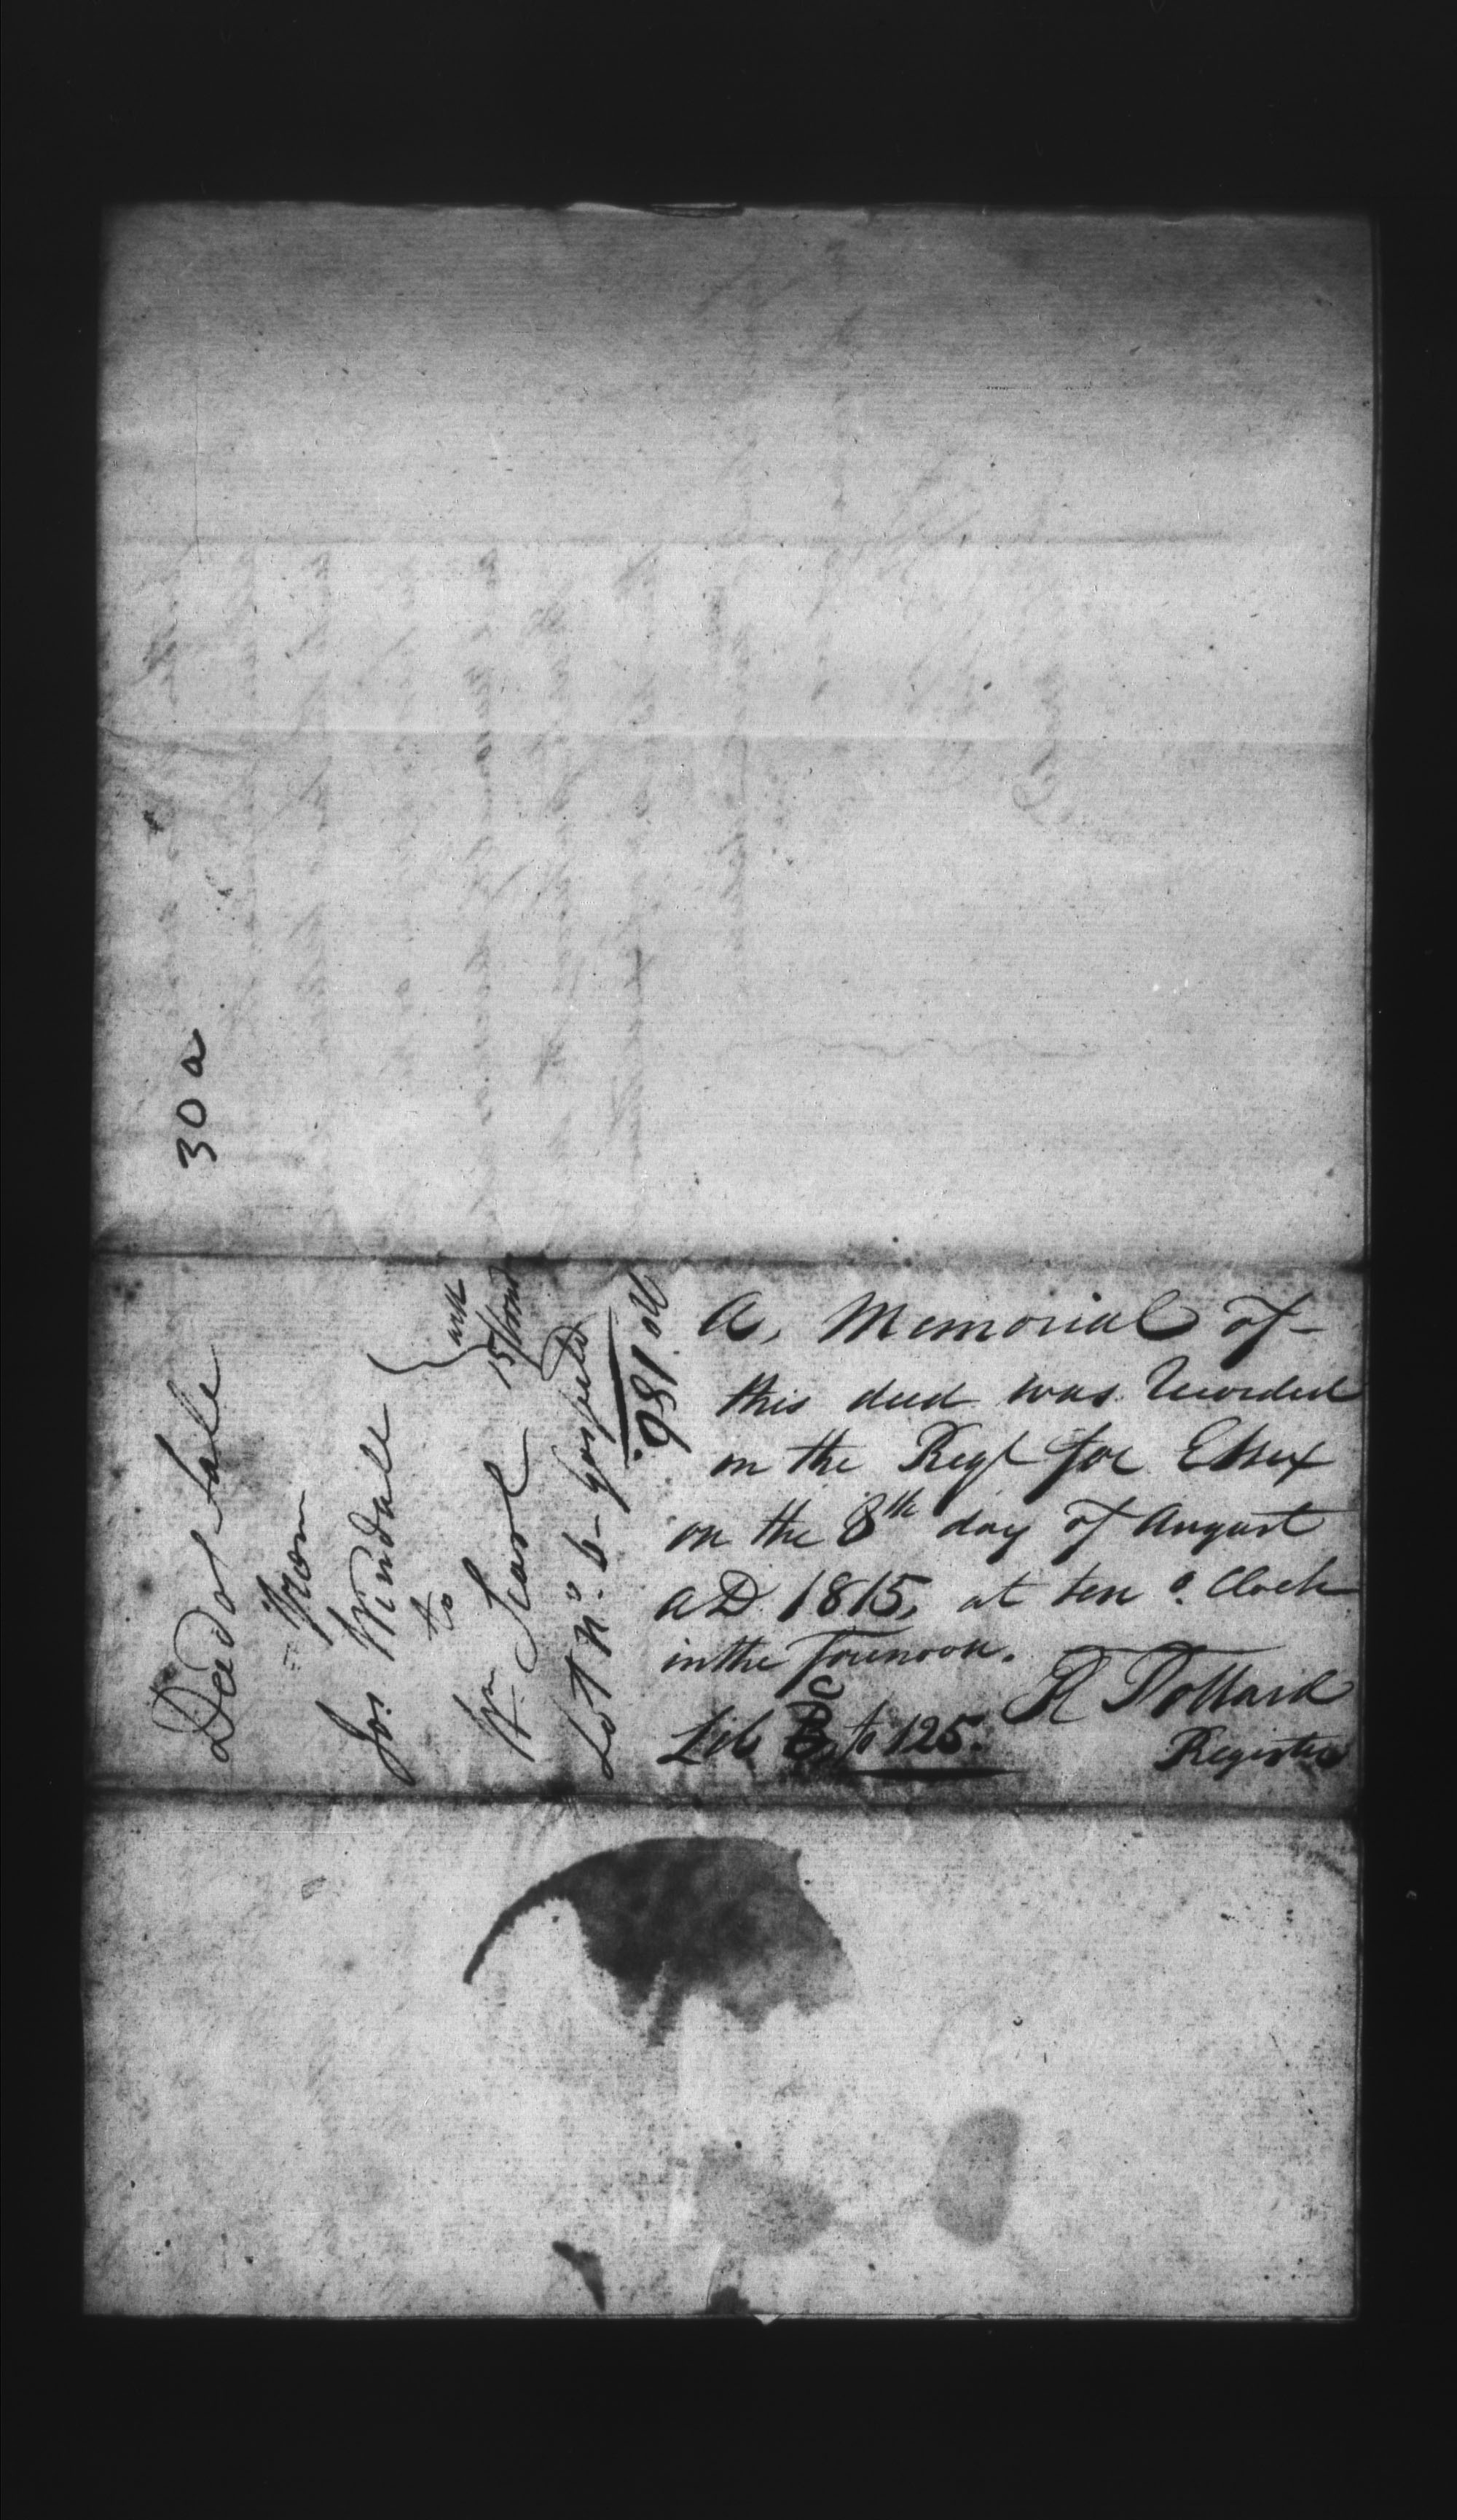 30 a
Deed of Sale
from
Jos. Windall
to
Wm Searl
Lot No. 6 - Gosfield
No. 186.
A, Memorial of
this deed was Recorded
in the Regt for Essex
on the 8th day of August
AD. 1815, at ten o. Clock
in the Forenoon.
Lib C, fo 125.
R Pollard
Register